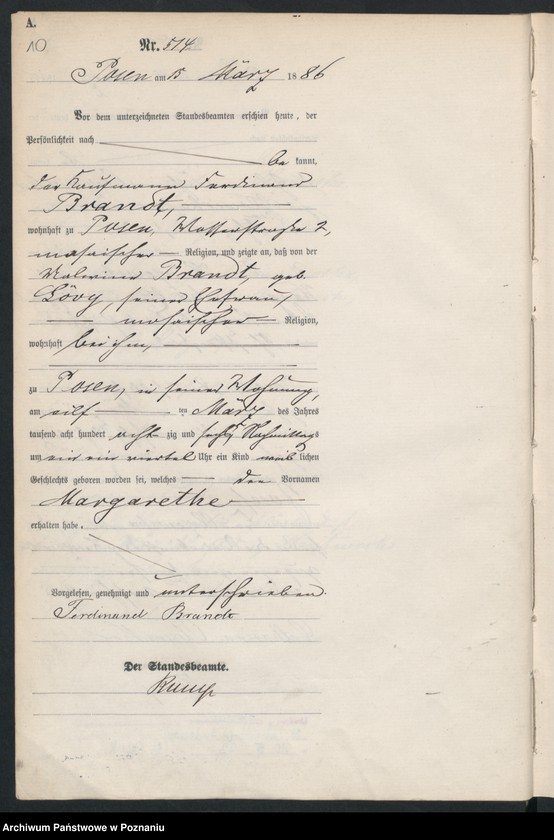 A.
10
Nr. 514
Posen am 15 März 1886
Vor dem unterzeichneten Standesbeamten erschien heute, der
Persönlichkeit nach
be kannt,
der Kaufmann Ferdinand
Brandt,
wohnhaft zu Posen, Wasserstraße 2,
mosaischer Religion, und zeigte an, daß von der
Malwine Brandt, geb.
Lövy, seiner Ehefrau,
mosaischer Religion,
wohnhaft bei ihm,
zu Posen, in seiner Wohnung,
am elf ten März des Jahres
tausend acht hundert acht zig und sechs Nachmittags
um ein ein viertel Uhr ein Kind weib lichen
Geschlechts geboren worden sei, welches den Vornamen
Margarethe
erhalten habe.
Vorgelesen, genehmigt und unterschrieben.
Ferdinand Brandt
Der Standesbeamte.
Archiwum Państwowe w Poznaniu